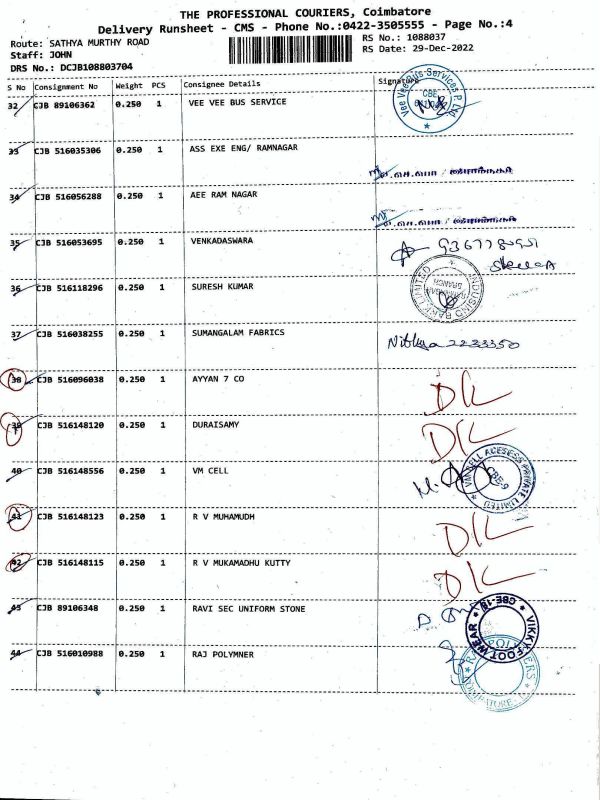 THE PROFESSIONAL COURIERS, Coimbatore
Delivery Runsheet - CMS - Phone No.:0422-3505555 - Page No.:4
Route: SATHYA MURTHY ROAD RS No.: 1088037
Staff: JOHN RS Date: 29-Dec-2022
DRS No.: DCJB108803704
S No Consignment No Weight PCS Consignee Details Signature
32 CJB 89106362 0.250 1 VEE VEE BUS SERVICE
Vee Vee Bus Services P. Ltd CBE
33 CJB 516035306 0.250 1 ASS EXE ENG/ RAMNAGAR
34 CJB 516056288 0.250 1 AEE RAM NAGAR
35 CJB 516053695 0.250 1 VENKADASWARA
36 CJB 516118296 0.250 1 SURESH KUMAR
INDUSIND BANK LIMITED BRANCH
37 CJB 516038255 0.250 1 SUMANGALAM FABRICS Nithya 2233350
38 CJB 516096038 0.250 1 AYYAN 7 CO D/L
39 CJB 516148120 0.250 1 DURAISAMY D/L
40 CJB 516148556 0.250 1 VM CELL
VM CELL ACSESESS PRIVATE LIMITED CBE-9
41 CJB 516148123 0.250 1 R V MUHAMUDH D/L
42 CJB 516148115 0.250 1 R V MUKAMADHU KUTTY D/L
43 CJB 89106348 0.250 1 RAVI SEC UNIFORM STONE
VIKKY FOOT WEAR CBE-18
44 CJB 516010988 0.250 1 RAJ POLYMNER